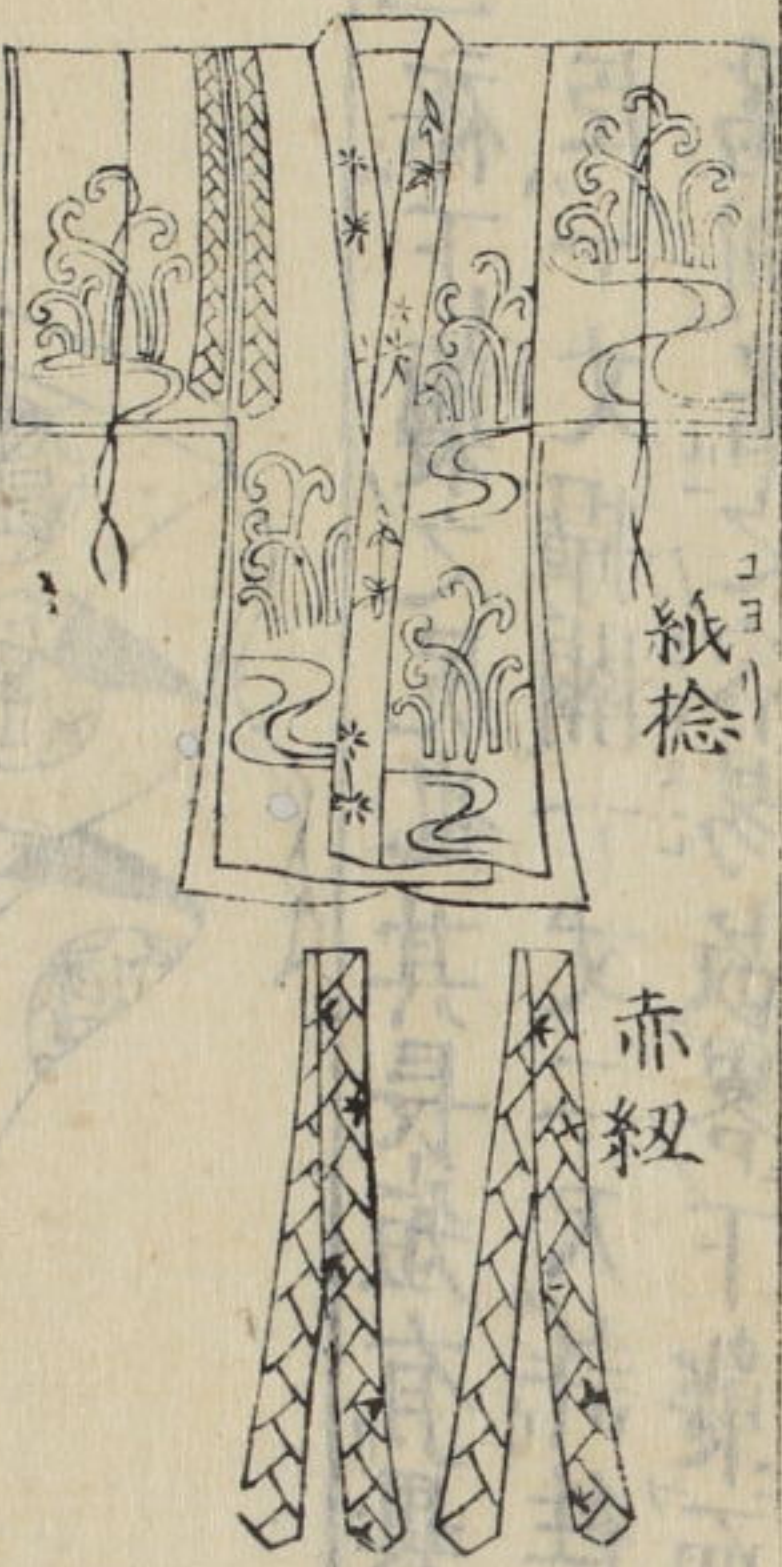 コヨリ
紙捻
赤紐